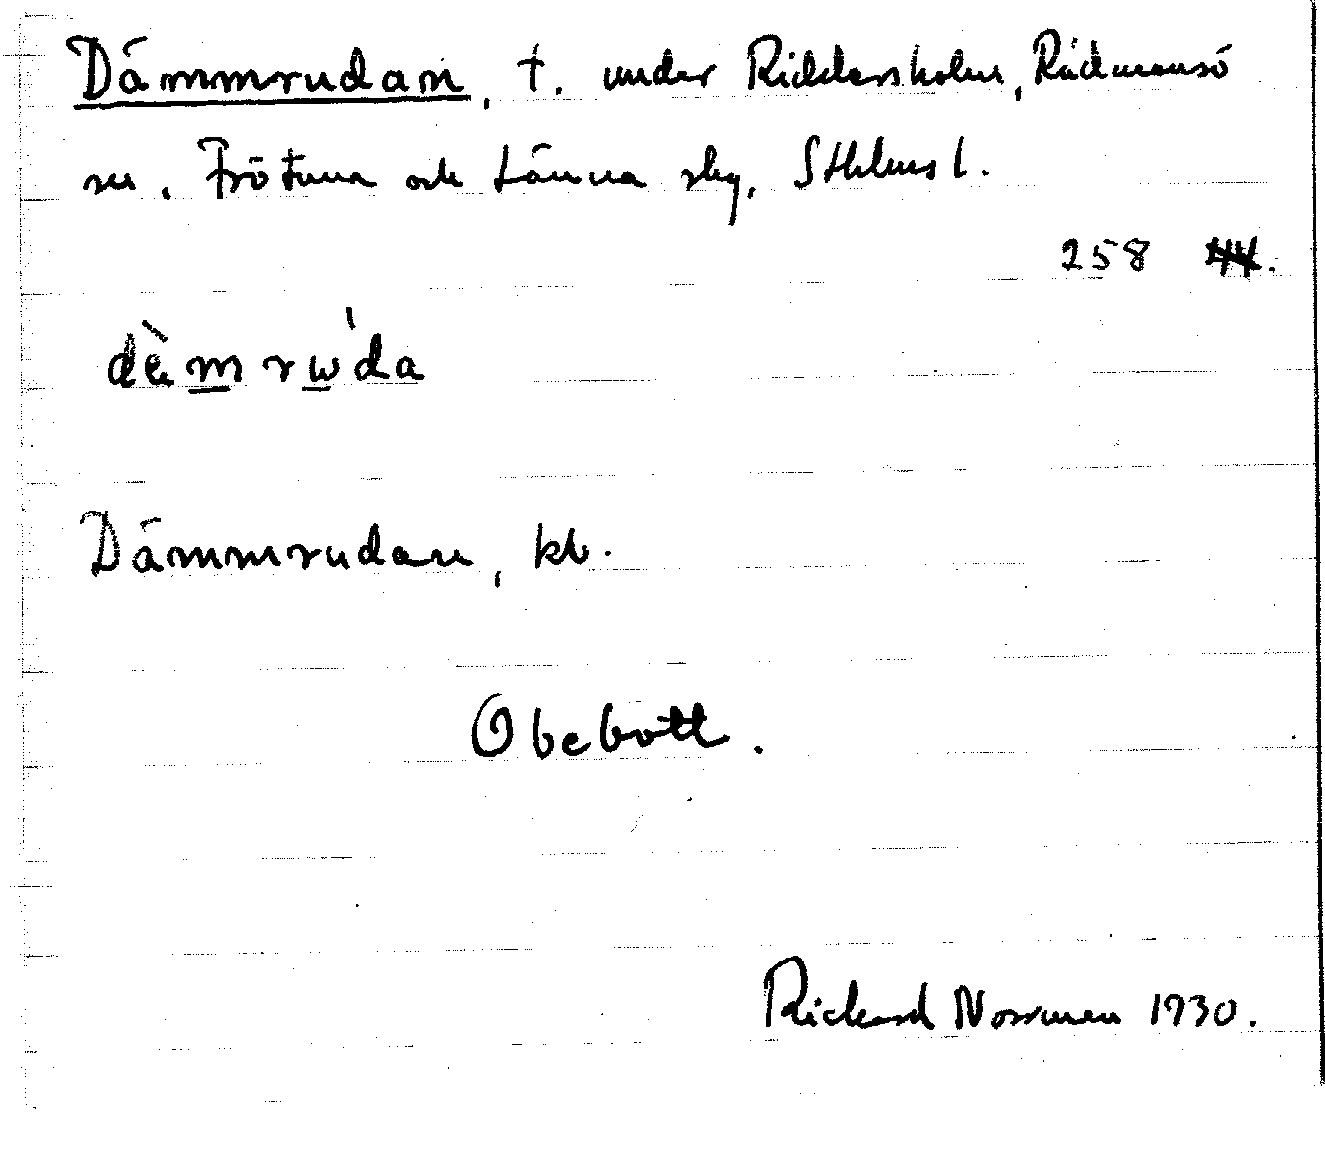 Dämmrudan, t. under Riddersholm, Rådmansö
sn. Frötuna och Länna skg, Sthlms l.
258
dæ̀mrẁda
Dämmrudan, kb.
Obebott.
Rickard Norrman 1930.